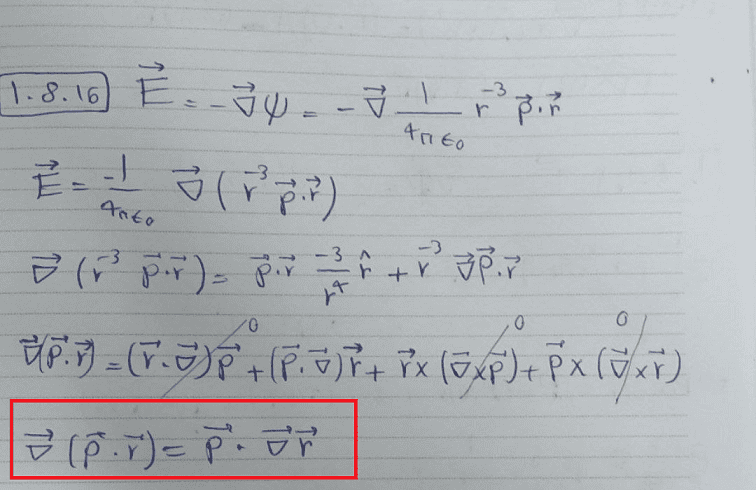 1.8.16 \vec{E} = -\vec{∇}ψ = -\vec{∇} \frac{1}{4πϵ_0} r^{-3} \vec{p}.\vec{r}
\vec{E} = \frac{-1}{4πϵ_0} \vec{∇} (r^{-3} \vec{p}.\vec{r})
\vec{∇} (r^{-3} \vec{p}.\vec{r}) = \vec{p}.\vec{r} \frac{-3}{r^4} \hat{r} + r^{-3} \vec{∇}\vec{p}.\vec{r}
\vec{∇}(\vec{p}.\vec{r}) = (\vec{r}.\vec{∇})\vec{p}^0 + (\vec{p}.\vec{∇})\vec{r} + \vec{r}×(\vec{∇}×\vec{p})^0 + \vec{p}×(\vec{∇}×\vec{r})^0
\vec{∇} (\vec{p}.\vec{r}) = \vec{p} . \vec{∇}\vec{r}